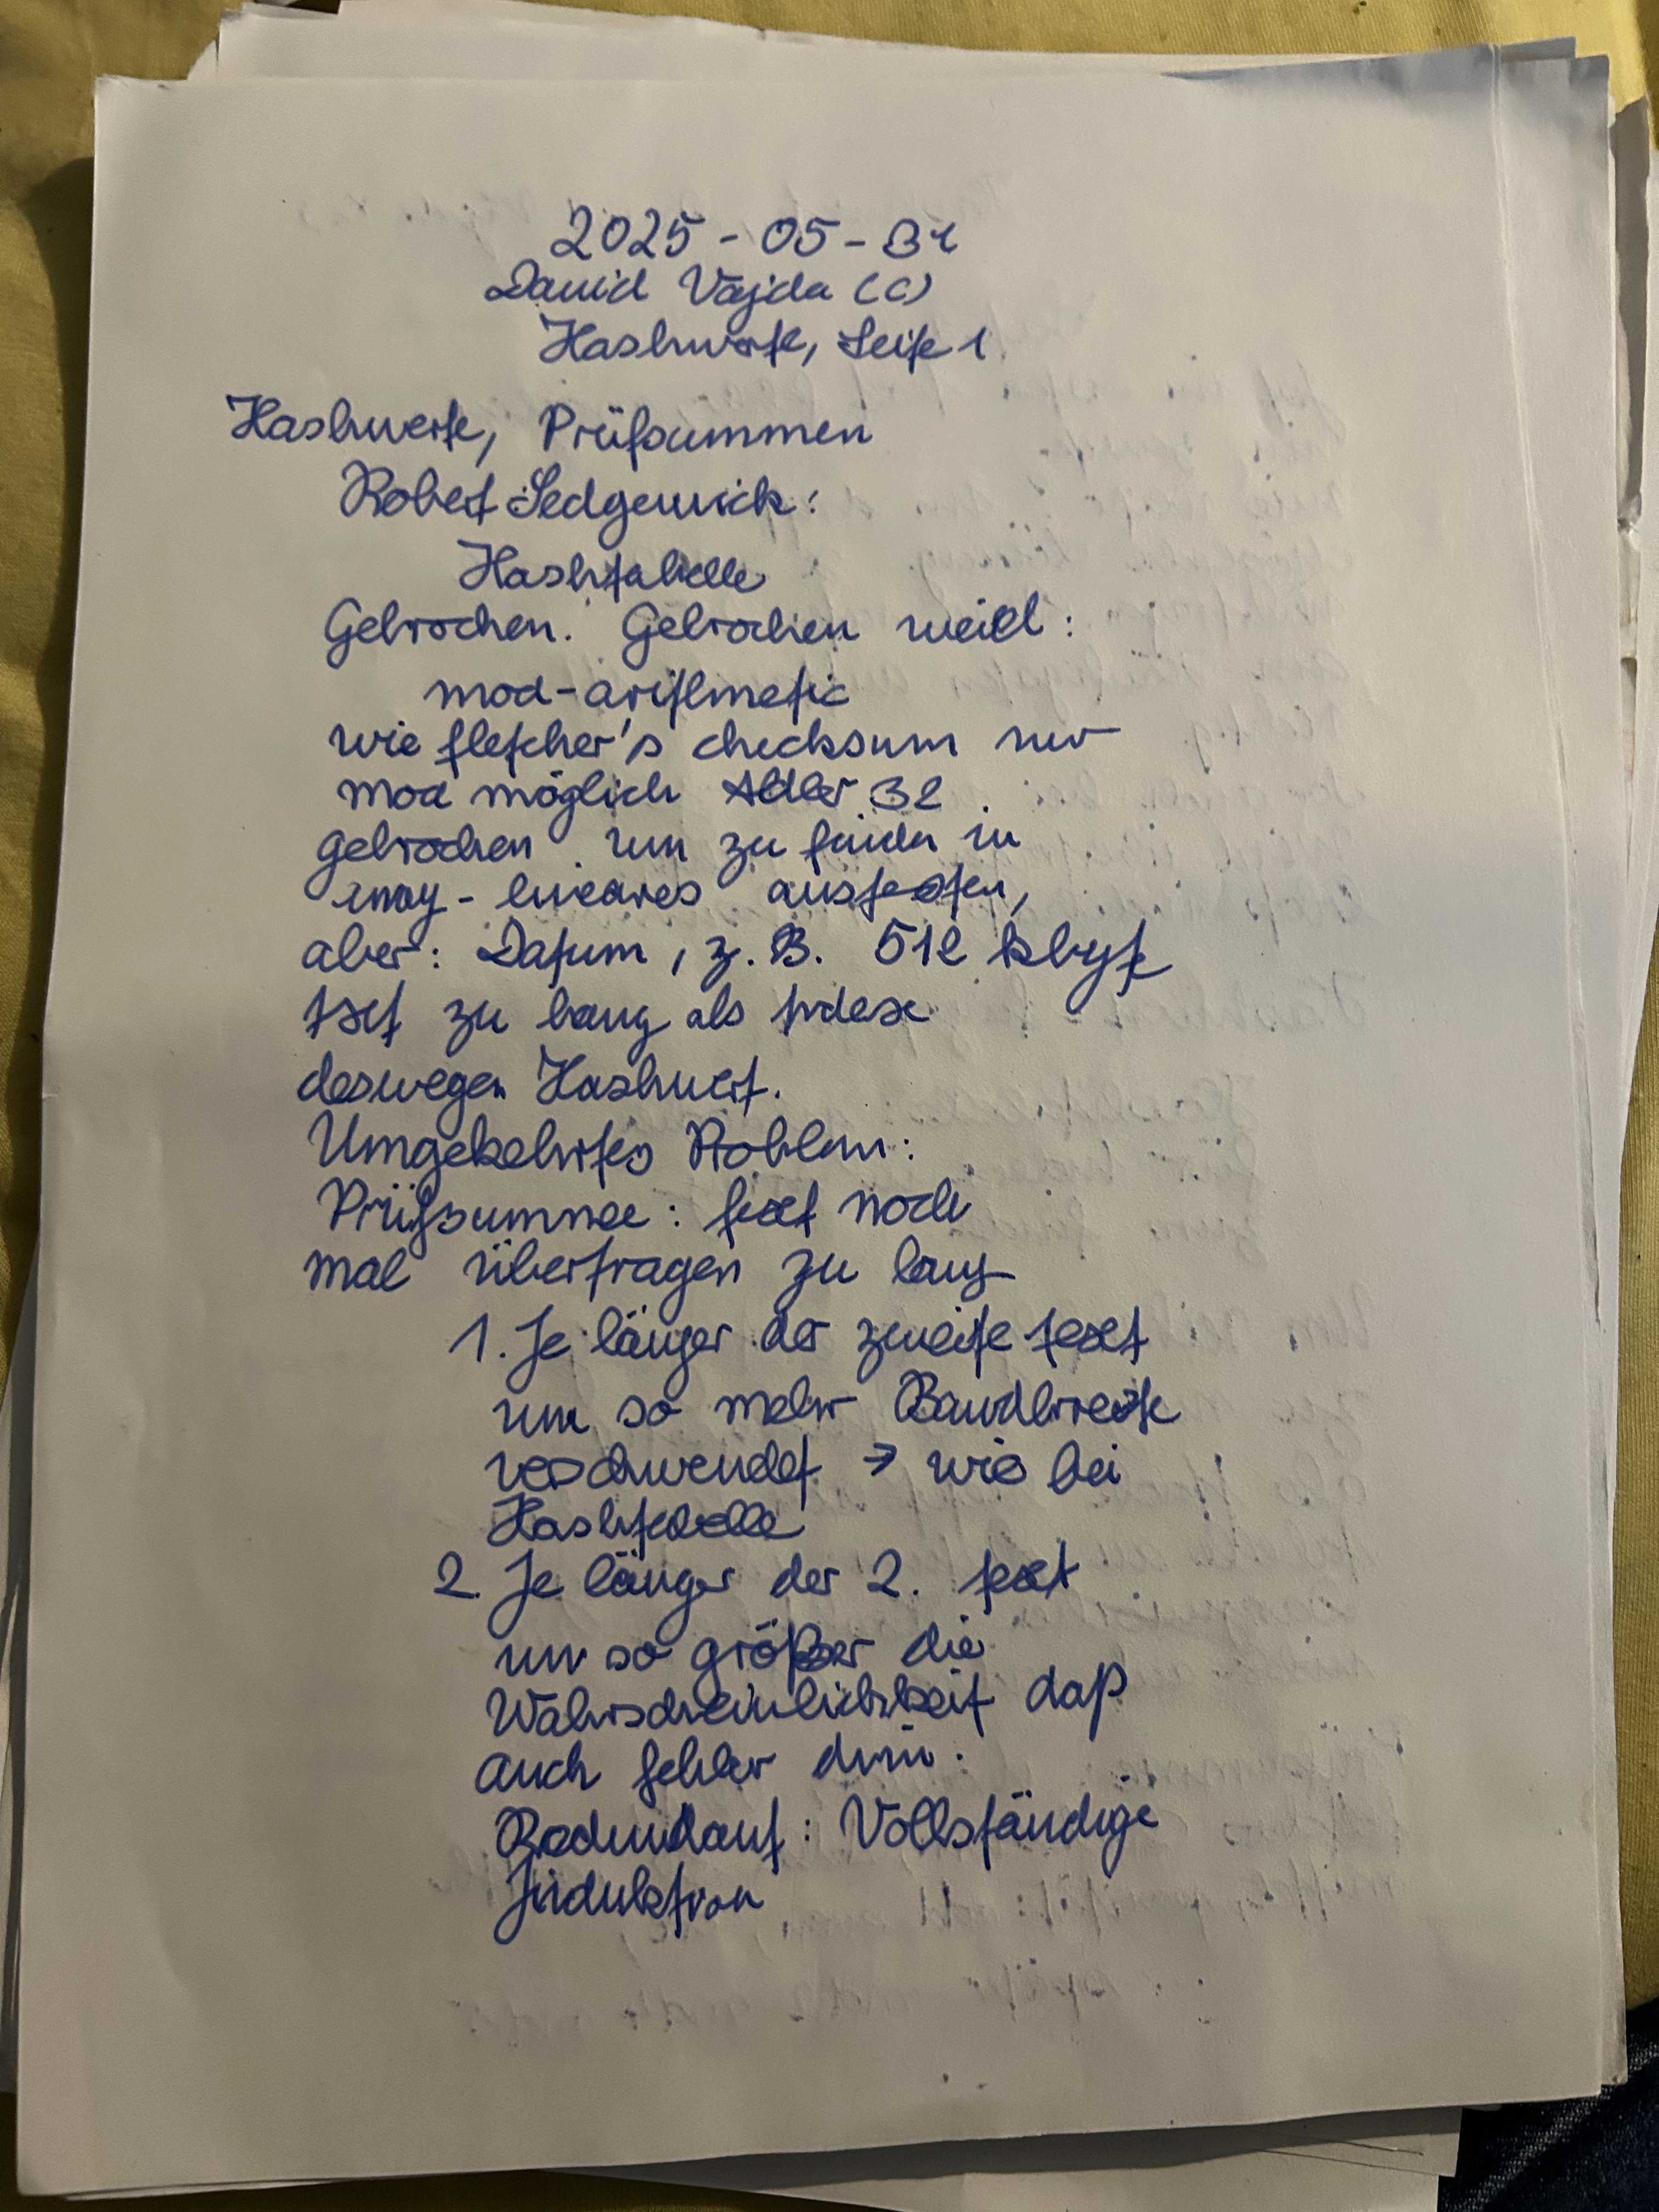 2025-05-31
David Vajda (C)
Hashwerte, Seite 1
Hashwerte, Prüfsummen
Robert Sedgewick:
Hashtabelle
Gebrochen. Gebrochen weil:
mod-arithmetic
wie fletcher's checksum nur
mod möglich Adler 32.
gebrochen. um zu finden in
array-lineares austesten,
aber: Datum, z.B. 512 kbyte
Ist zu lang als Index
deswegen Hashwert.
Umgekehrtes Problem:
Prüfsumme: text noch
mal übertragen zu lang
1. Je länger der zweite text
um so mehr Bandbreite
verschwendet → wie bei
Hashtabelle
2. Je länger der 2. text
um so größer die
Wahrscheinlichkeit daß
auch fehler drin.
Redundant: Vollständige
Induktion